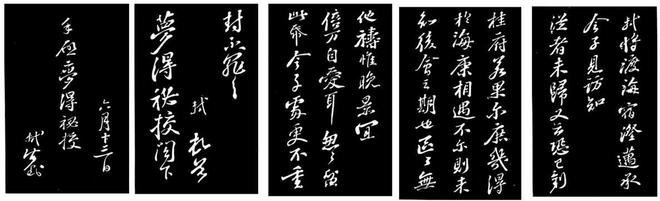 軾將渡海宿澄邁承
令子見訪知
從者未歸又云恐已到
桂府若果尔庶幾得
於海康相遇不尔則未
知後會之期也區區無
他禱惟晚景宜
倍万自愛耳忽忽留
此帋令子處更不重
封不罪〻
軾頓首
夢得祕校閣下
六月十三日
手啟夢得祕校
軾封